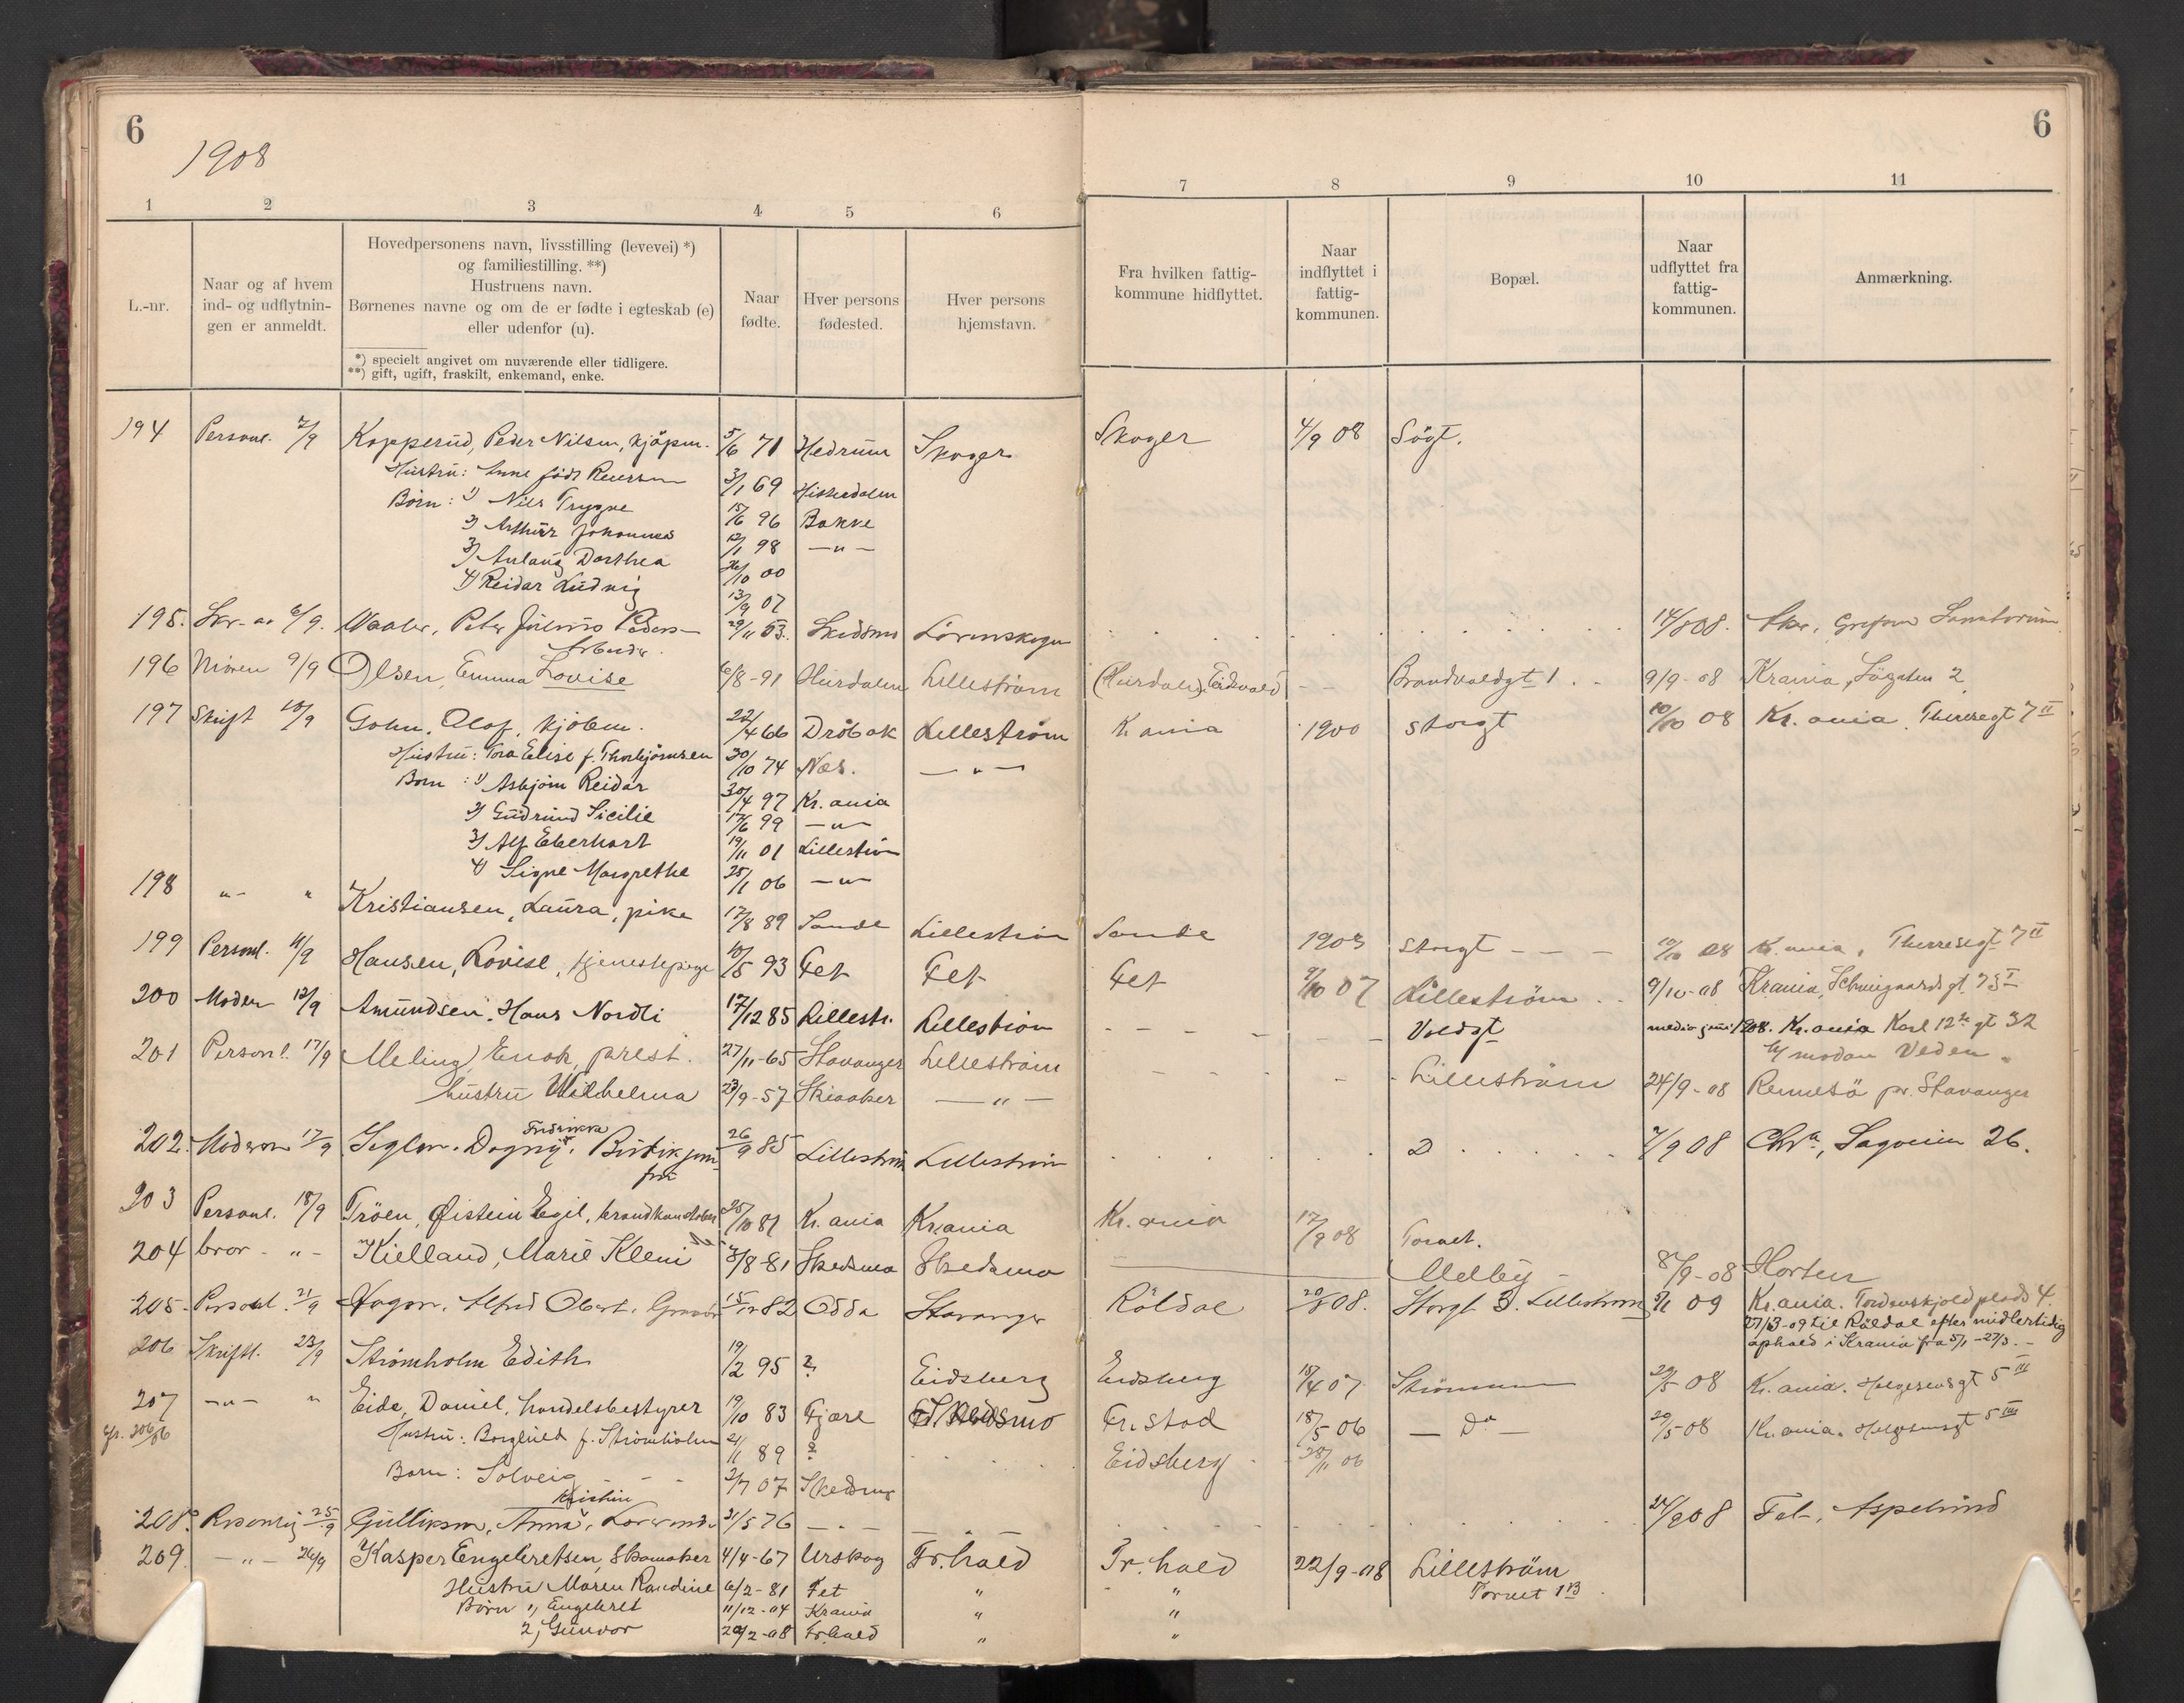 6
1908
1 2 3 4 5 6
L.-nr.
Naar og af hvem
ind- og udflytnin-
gen er anmeldt.
Hovedpersonens navn, livsstilling (levevei) *)
og familiestilling. **)
Hustruens navn.
Børnenes navne og om de er fødte i egteskab (e)
eller udenfor (u).
*) specielt angivet om nuværende eller tidligere.
**) gift, ugift, fraskilt, enkemand, enke.
Naar
fødte.
Hver persons
fødested.
Hver persons
hjemstavn.
6
7 8 9 10 11
Fra hvilken fattig-
kommune hidflyttet.
Naar
indflyttet i
fattig-
kommunen.
Bopæl.
Naar
udflyttet fra
fattig-
kommunen.
Anmærkning.
194 Personl. 7/9 Kopperud, Peder Nilsen, kjøpm. 5/6 71 Hedrum Skoger Skoger 4/9 08 Søgt.
Hustru: Anne født 3/1 69
Børn: 1) Nils Trygve 15/6 96 Bakke
2) Arthur Johannes 12/1 98 —"—
3) Aslaug Dorthea 26/10 00
4) Reidar Ludvig 13/9 07
195. 6/9. Vaaler, Peter Julius Peders- 29/11 53. Skedsmo Lørenskogen 14/8 08. Grefsen Sanatorium
Arbeider.
196 Moren 9/9 Olsen, Emma Lovise 6/8-91 Hurdalen Lillestrøm (Hurdalen) Eidsvold - - Brandvoldgt 1 . . 9/9-08 Krania, Søgaten 2
197 Skrift 10/9 Gohn, Olof, kjøbm. 22/4 66 Drøbak Lillestrøm Kania 1900 Storgt 10/10 08 Kr.ania Theresegt 7 II
Hustru: Tora Elise f. Thorbjørnsen 30/10 74 Nes. —"—
Børn: 1) Asbjørn Reidar 30/4 97 Kr.ania
2) Gudrund Sicilie 17/6 99 —"—
3) Alf Eberhart 19/11 01 Lillestrøm
4) Signe Margrethe 25/1 06 —"—
198 "- " Kristiansen, Laura, pike 17/8 89 Sande Lillestrøm Sande 1903 Storgt - - - 10/10 08 K.ania, Theresegt 7 II
199 Personl. 11/9 Hansen, Lovise, tjenestepige 10/5 93 Fet Fet Fet 9/10 07 Lillestrøm . . 9/10-08 Krania, Schweigaardsgt. 75 I
200 Moder 12/9 Amundsen, Hans Nordli 17/12 85 Lillestr. Lillestrøm - - - - - - Voldgt medio juni 1908. Kr.ania Karl 12te gt 32
t/ modan Veden.
201 Personl. 17/9 Meling, Enok, prest. 27/11-65 Stavanger Lillestrøm - - - - - Lillestrøm 24/9-08 Rennesø pr. Stavanger
hustru Wilhelma 23/9-57 Skiaaker —"—
Fredrikke
202. Moderen 17/9 Seglen, Dagny, Butikjom- 26/9 85 Lillestrøm Lillestrøm . . . . . D . . . . 7/9 08 Chra, Sagveien 26.
fru
203 Personl. 18/9 Trøen, Øistein Egil, brandkonstabel 25/10 81 Kr.ania Kr.ania Kr.ania 17/9 08 Torvet.
204 bror - "- Kielland, Marie Kleni 3/8-81 Skedsmo Skedsmo — Melby - 8/9-08 Horten
205- Personl. 21/9 Hagen, Alfred Obert, 15/12 82 Odda Stavanger Røldal 20/8 08. Storgt 3. Lillestrøm 5/1 09 Kr.ania. Tordenskjoldplads 4.
27/3-09 til Røldal efter midlertidig
ophold i Krania fra 5/1-27/3.-
206 Skriftl. 23/9 Strømholm Edith 19/2 95 ? Eidsberg Eidsberg 15/4 07 Strømmen 29/5 08 Kr.ania. Helgesensgt 5 III
207 -"- " Eide, Daniel, handelsbestyrer 19/10 83 Fjære Skedsmo Fr.stad 18/5 06 — Do — 29/5-08 Kr.ania. Helgesensgt 5 III
cfr. 306/06 Hustru: Borghild f. Strømholm 21/1 89 ? . . . . Eidsberg - 28/11 06
Barn: Solveig - - - 2/7 07 Skedsmo
Kristine
208. 25/9 Gulliksen, Anna, 31/5 76 —"— —"— . . . . . . . . 24/9 08 Fet, Aspelund
209. —"— 26/9 Kasper Engebretsen, Skomaker 4/4-67 Urskog Fr.hald Fr.hald 22/9-08 Lillestrøm
Torvet 1B
Hustru Maren Randine 6/2-81 Fet " "
Børn 1, Engebret 11/12-04 Krania " "
2, Gunvor 20/2-08 Fr.hald " "